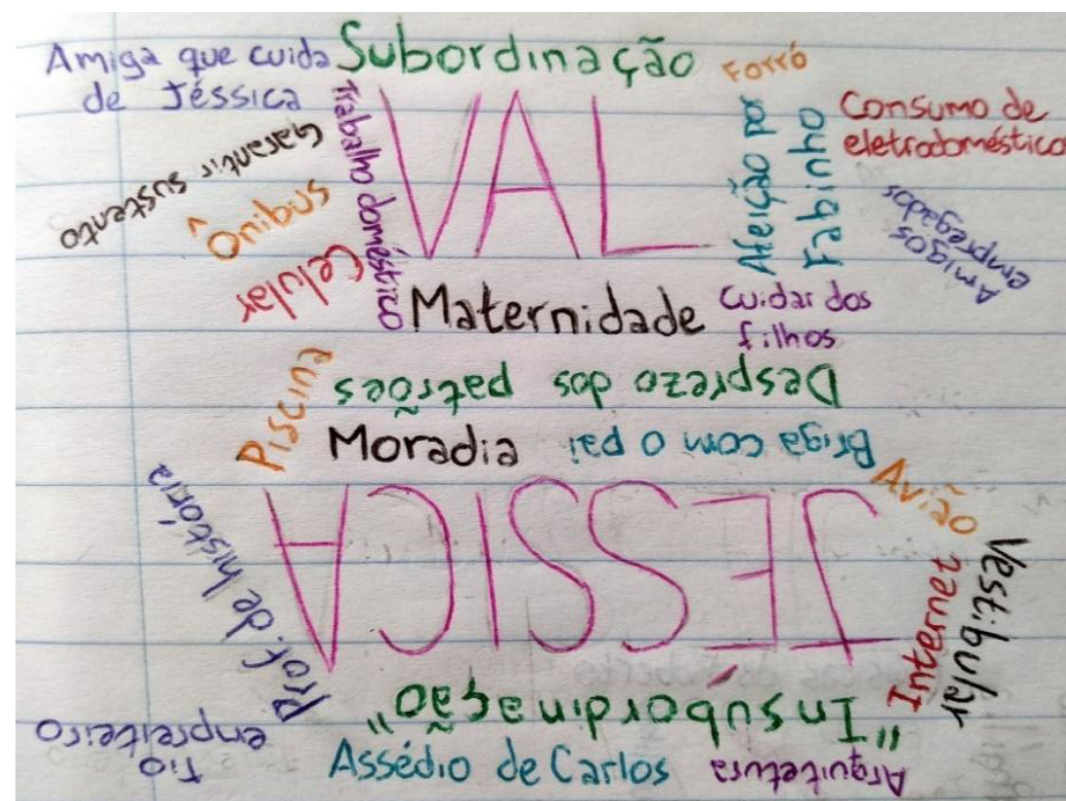 Amiga que cuida
de Jéssica
Subordinação
Forró
Consumo de
eletrodoméstico
Garantir sustento
Ônibus
Celular
Trabalho doméstico
VAL
Afeição por
Fabinho
Amigos
empregados
Maternidade
Cuidar dos
filhos
Desprezo dos patrões
Piscina
Moradia
Briga com o pai
Avião
Prof. de história
JÉSSICA
Internet
Vestibular
"Insubordinação"
Tio
empreiteiro
Assédio de Carlos
Arquitetura